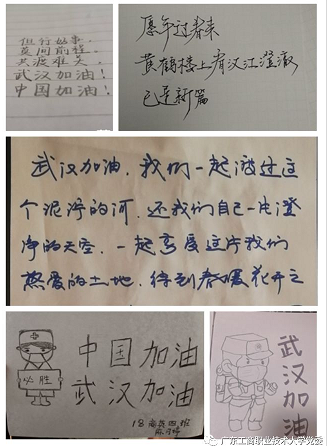 但行好事，
莫问前程。
共渡难关，
武汉加油！
中国加油！
愿年过春来
黄鹤楼上看汉江澄澈
已是新篇
武汉加油，我们一起渡过这
个泥泞的河，还我们自己一片澄
净的天空，一起享受这片我们
热爱的土地，待到春暖花开之
必胜
中国加油
武汉加油
武汉加油
广东工商职业技术大学